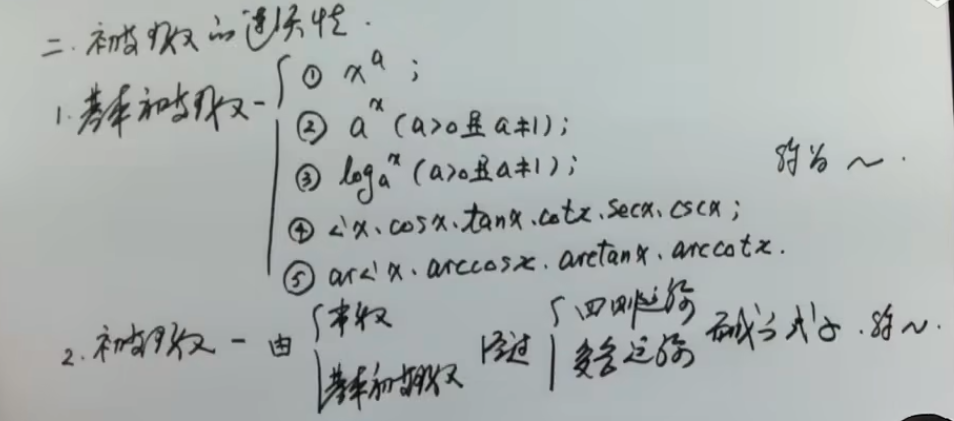 二. 初等函数的连续性.
1. 基本初等函数 - ① xᵃ ;
② aˣ (a>0且a≠1);
③ logₐx (a>0且a≠1);
称为 ~.
④ sinx、cosx、tanx、cotx、secx、cscx;
⑤ arcsinx、arccosx、arctanx、arccotx.
2. 初等函数 - 由 常数 基本初等函数 经过 四则运算 复合运算 而成的式子. 称~.